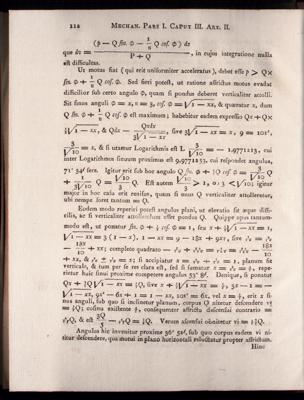 212 MECHAN. PARS I. CAPUT III. ART. II.
que dc = (p − Q fin. φ − 1/n Q cof. φ) dz / P + Q , in cujus integratione nulla
est difficultas.
Ut motus fiat (qui erit uniformiter acceleratus), debet esse p > Q×
fin. φ + 1/n Q cof. φ. Sed fieri potest, ut ratione affrictus motus evadat
difficilior sub certo angulo φ, quam si pondus deberet verticaliter attolli.
Sit sinus anguli = x, n = 3, cof. = √1 − xx, & quæratur x, dum
Q fin. φ + 1/n Q cof. φ est maximum; habebitur eadem expressio Qx + Q×
⅓√1 − xx, & Qdx − Qxdx / 3√1 − xx, sive 3√1 − xx = x, 9 = 10x²,
3/√10 = x, & si utamur Logarithmis est L. 3/√10 = − 1.9771213, cui
inter Logarithmos sinuum proximus est 9.9771253, cui respondet angulus,
71° 34′ fere. Igitur erit sub hoc angulo Q fin. φ + ⅓Q cof. φ = 3/√10 Q
+ 1/3√10 Q = √10/3 Q. Est autem √10/3 > 1,
major in hoc casu erit renisus, quam si onus Q verticaliter attolleretur,
ubi nempe foret tantum = Q.
Eodem modo reperiri potest angulus plani, ut elevatio sit æque diffi-
cilis, ac si verticaliter attollendum esset pondus Q. Quippe opus tantum-
modo est, ut ponatur fin. φ + ⅓ cof. φ = 1, seu x + ⅓√1 − xx = 1,
√1 − xx = 3 (1 − x), 1 − xx = 9 − 18x + 9xx,
+ xx; completo quadrato
+ xx, &
verticale, & tum per se res clara est, sed si sumatur x = ⅘, repe-
rietur huic sinui proxime competens angulus 53° 8′. Denique, si ponatur
Qx + ⅓Q√1 − xx = ⅓Q, sive x + ⅓√1 − xx = ⅓, 3x − 1 = −
√1 − xx, 9x² − 6x + 1 = 1 − xx, 10x² = 6x, vel x = ⅗, erit x si-
nus anguli, sub quo si inclinetur planum, corpus Q nitetur descendere vi
cosinu existente ⅘, consequenter affrictu descensui contrario =
Verum ascensui obnitetur vi =
Angulus hic invenitur proxime 36° 52′, sub quo corpus eadem vi ni-
titur descendere, qua motui in plano horizontali reluctatur propter affrictum.
Hinc